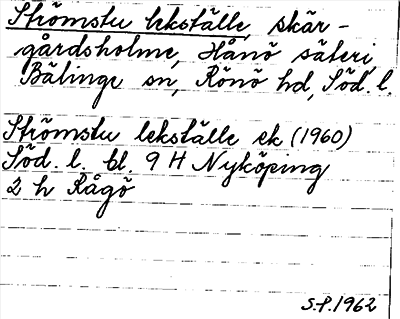 Strömstu lekställe, skär-
gårdsholme, Hånö säteri,
Bälinge sn, Rönö hd, Söd. l.
Strömstu lekställe ek (1960)
Söd. l. bl. 9 H Nyköping
2 h Rågö
S.P. 1962